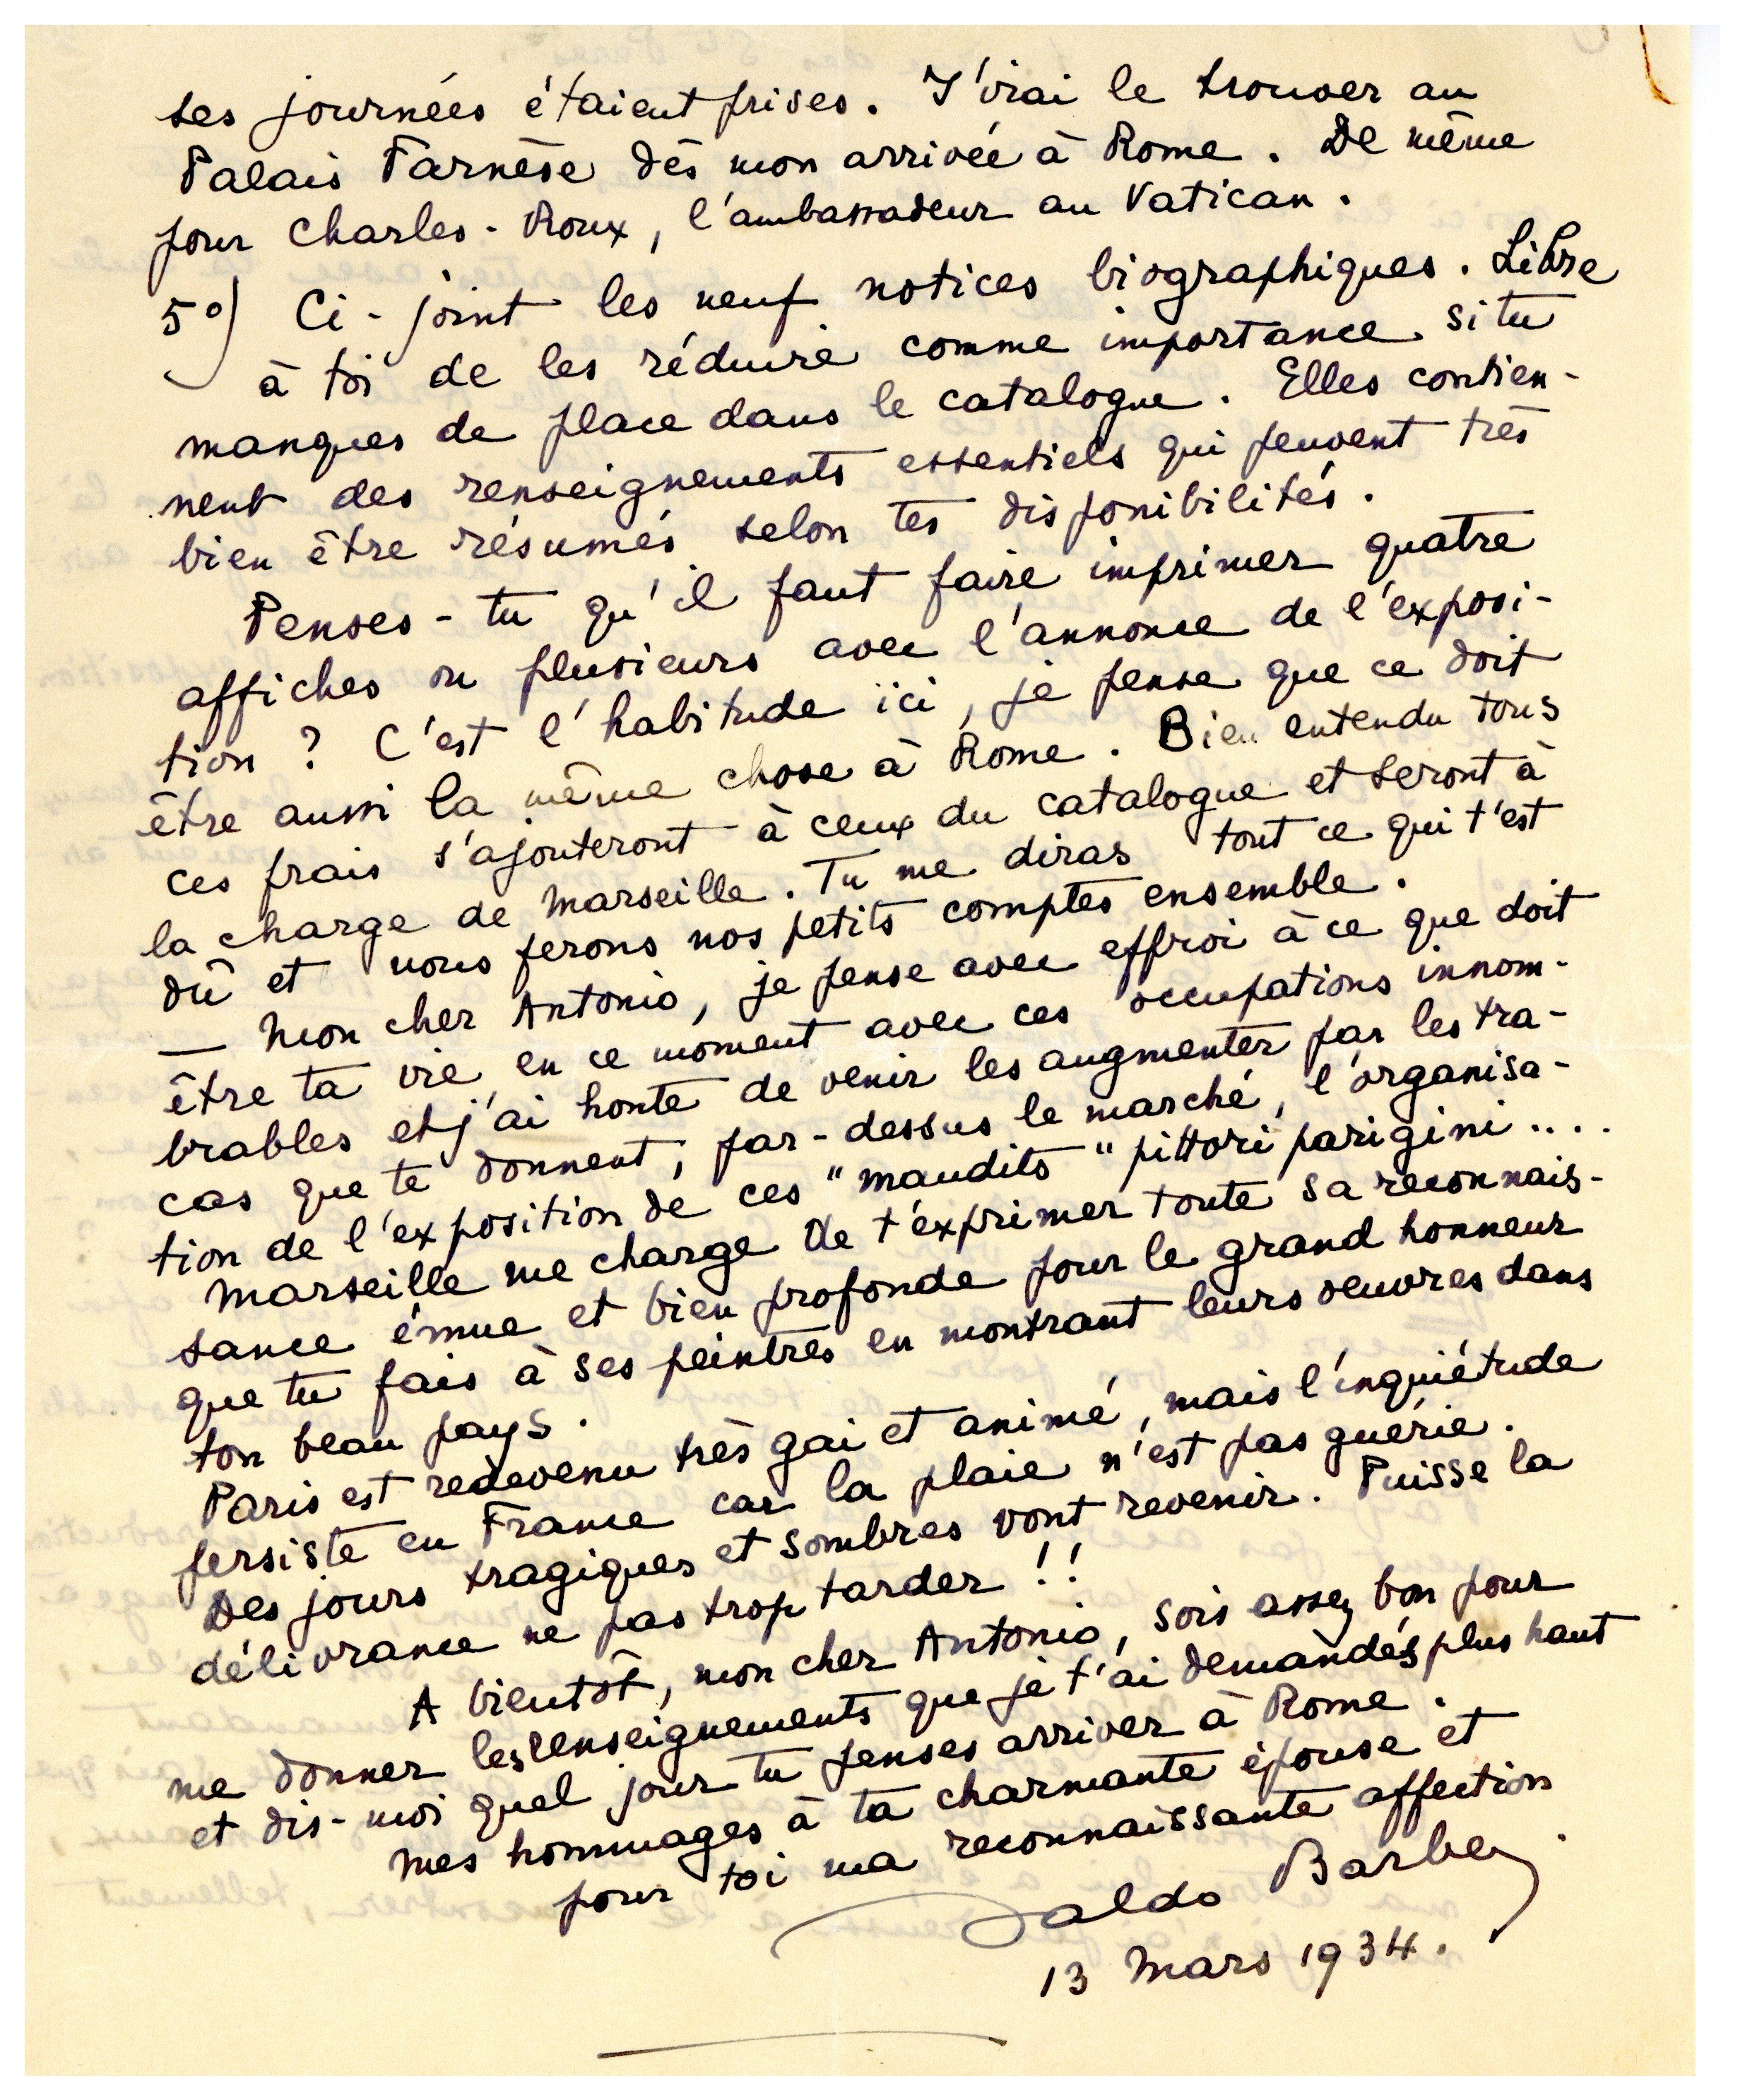 ses journées étaient prises. J'irai le trouver au
Palais Farnèse dès mon arrivée à Rome. De même
pour Charles-Roux, l'ambassadeur au Vatican.
5°) Ci-joint les neuf notices biographiques. Libre
à toi de les réduire comme importance si tu
manques de place dans le catalogue. Elles contien-
nent des renseignements essentiels qui peuvent très
bien être résumés selon tes disponibilités.
Penses-tu qu'il faut faire imprimer quatre
affiches ou plusieurs avec l'annonce de l'exposi-
tion ? C'est l'habitude ici, je pense que ce doit
être aussi la même chose à Rome. Bien entendu tous
ces frais s'ajouteront à ceux du catalogue et seront à
la charge de Marseille. Tu me diras tout ce qui t'est
dû et nous ferons nos petits comptes ensemble.
— Mon cher Antonio, je pense avec effroi à ce que doit
être ta vie en ce moment avec ces occupations innom-
brables et j'ai honte de venir les augmenter par les tra-
cas que te donnent, par-dessus le marché, l'organisa-
tion de l'exposition de ces "maudits" pittori parigini....
Marseille me charge de t'exprimer toute sa reconnais-
sance émue et bien profonde pour le grand honneur
que tu fais à ses peintres en montrant leurs oeuvres dans
ton beau pays.
Paris est redevenu très gai et animé, mais l'inquiétude
persiste en France car la plaie n'est pas guérie.
Des jours tragiques et sombres vont revenir. Puisse la
délivrance ne pas trop tarder !!
A bientôt, mon cher Antonio, sois assez bon pour
me donner les renseignements que je t'ai demandés plus haut
et dis-moi quel jour tu penses arriver à Rome.
Mes hommages à ta charmante épouse et
pour toi ma reconnaissante affection
Waldo Barbey
13 Mars 1934.